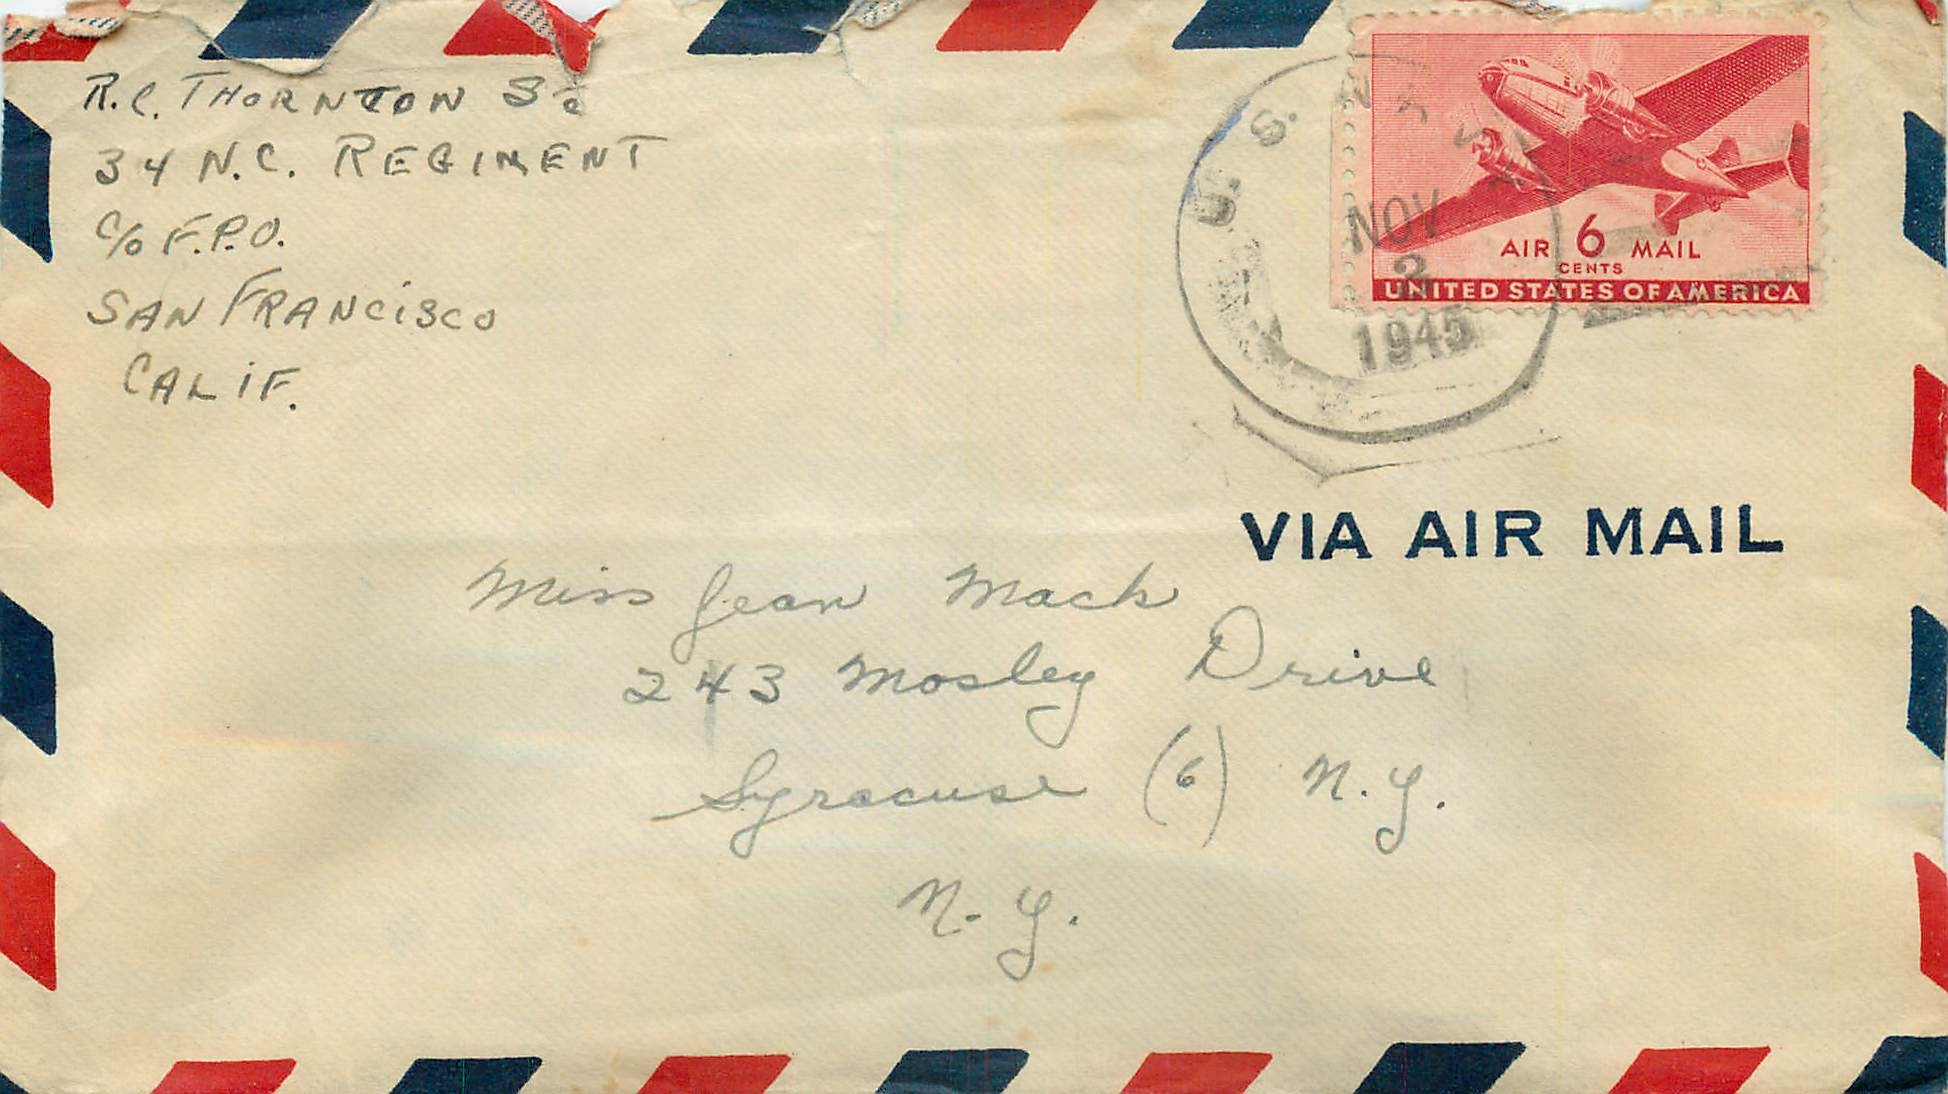 R.C. THORNTON S2c
34 N.C. REGIMENT
c/o F.P.O.
SAN FRANCISCO
CALIF.
U.S. NAVY
NOV
2
1945
AIR 6 MAIL
CENTS
UNITED STATES OF AMERICA
VIA AIR MAIL
Miss Jean Mack
243 Mosley Drive
Syracuse (6) N.Y.
N.Y.